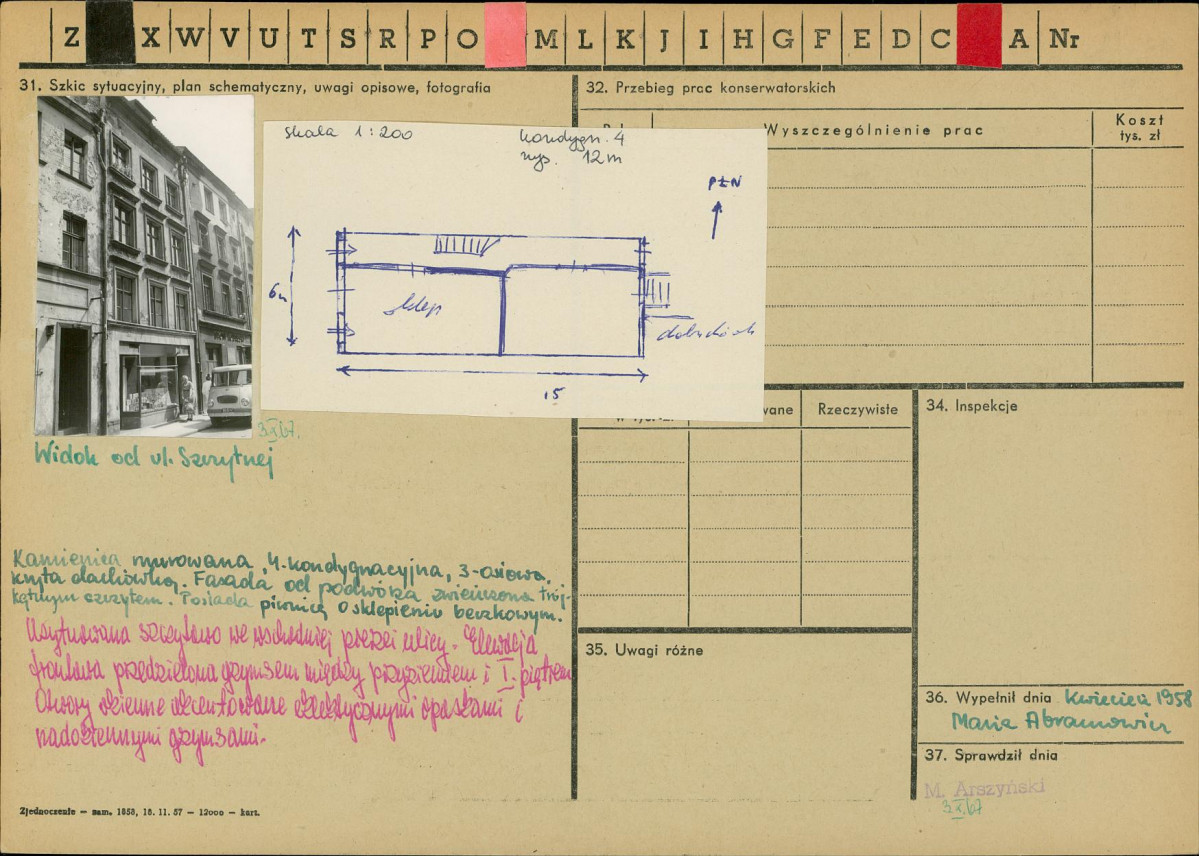 Z X W V U T S R P O M L K J I H G F E D C A Nr
31. Szkic sytuacyjny, plan schematyczny, uwagi opisowe, fotografia
skala 1:200
kondygn. 4
wys. 12m
PŁN
6m
sklep
15
3.X.67.
Widok od ul. Szczytnej
Kamienica murowana, 4-kondygnacyjna, 3-osiowa,
kryta dachówką. Fasada od podwórza zwieńczona trój-
kątnym szczytem. Posiada piwnicę o sklepieniu beczkowym.
Usytuowana szczytowo we wschodniej pierzei ulicy. Elewacja
frontowa przedzielona gzymsem między przyziemiem i I. piętrem
Otwory okienne akcentowane eklektycznymi opaskami i
nadokiennymi gzymsami.
Zjednoczenie — zam. 1858, 18. 11. 57 — 12000 — kart.
32. Przebieg prac konserwatorskich
Wyszczególnienie prac
Koszt
tys. zł
wane
Rzeczywiste
34. Inspekcje
35. Uwagi różne
36. Wypełnił dnia Kwiecień 1958
Maria Abramowicz
37. Sprawdził dnia
M. Arszyński
3.X.67